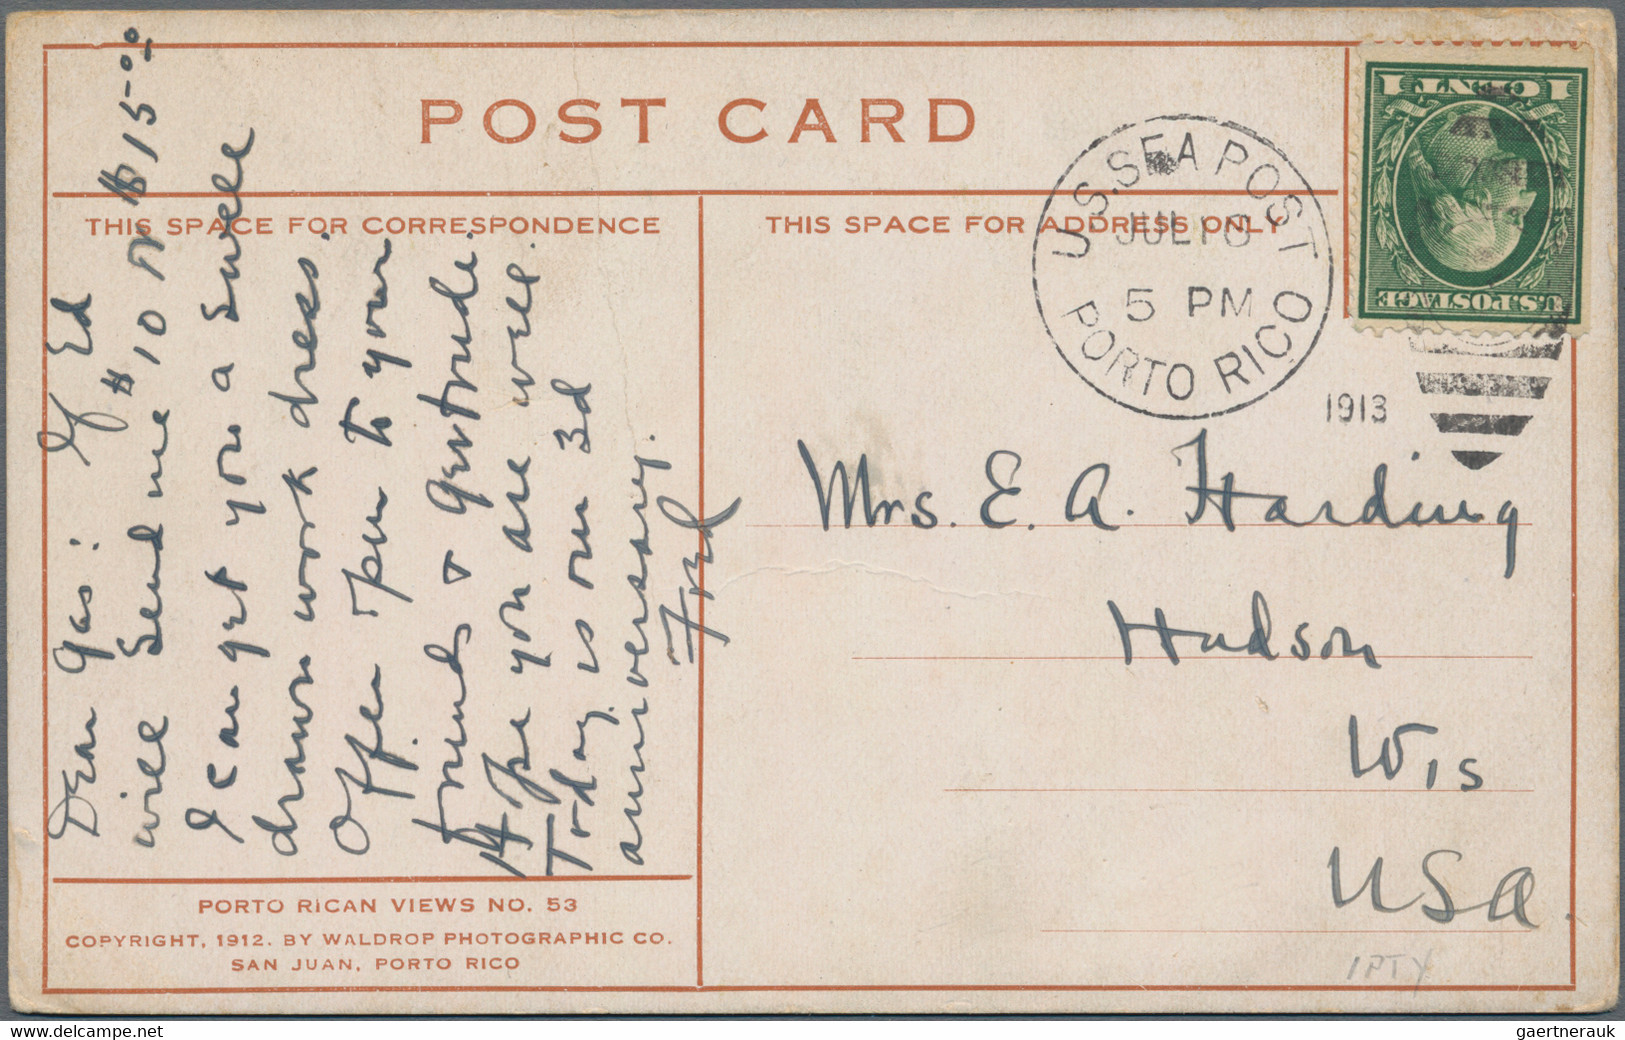 POST CARD
THIS SPACE FOR CORRESPONDENCE
THIS SPACE FOR ADDRESS ONLY
U.S. SEA POST
JUL 18
5 PM
PORTO RICO
1913
1 CENT 1
U.S. POSTAGE
Dear Gas: If Ed
will send me $10 or $15.00
I can get you a swell
drawn work dress.
Offer open to your
friends & Gertrude.
Hope you are well.
Today is our 3d
anniversary.
Fred
Mrs. E. A. Harding
Hudson
Wis
USA.
1PTY
PORTO RICAN VIEWS NO. 53
COPYRIGHT, 1912. BY WALDROP PHOTOGRAPHIC CO.
SAN JUAN, PORTO RICO
www.delcampe.net
gaertnerauk